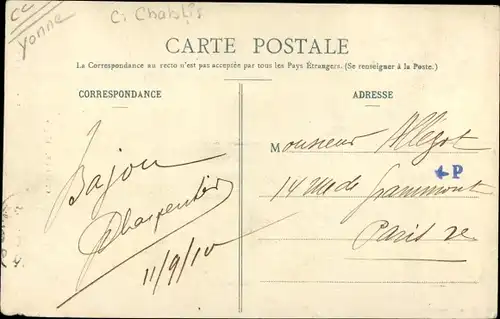 CC
Yonne
C: Chablis
CARTE POSTALE
La Correspondance au recto n'est pas acceptée par tous les Pays Étrangers. (Se renseigner à la Poste.)
CORRESPONDANCE
ADRESSE
Bajou
Charpentier
11/9/10
Monsieur Allégot
P
14 rue de Grammont
Paris 2e